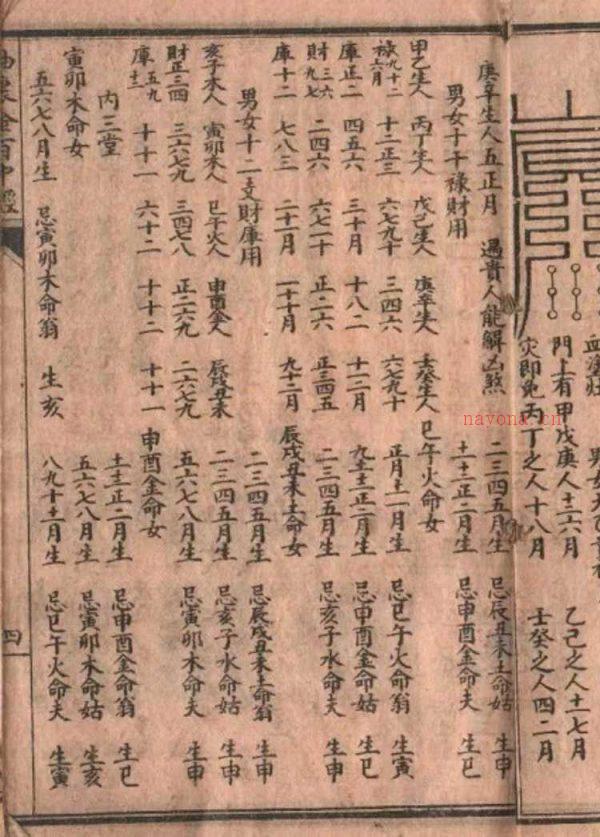 門上有甲戊庚人十二六月　乙己之人十七月
災即免丙丁之人十八月　壬癸之人四二月
庚辛生人五正月　遇貴人能解凶煞　二三四五月生　忌辰戌丑未土命姑　生申
男女十干祿財用　十十二正二月生　忌申酉金命夫　生巳
甲乙生人　丙丁生人　戊己生人　庚辛生人　壬癸生人　巳午火命女
祿九十二六月　十二正三　六七九十　三四六　六七九十　正月十一月生　忌巳午火命翁　生寅
庫正二　四五六　三十月　十八二　十一二月　九十十二正二月　忌申酉金命姑　生巳
財三六九七　二四六　六七十　正二六　正三四五　二三四五月生　忌亥子水命夫　生申
庫十二　七八三　二十一月　一十月　九十二月　辰戌丑未土命女
男女十二支財庫用　二三四五月生　忌辰戌丑未土命翁　生申
亥子水人　寅卯木人　巳午火人　申酉金人　辰戌丑未　二三四五月生　忌亥子水命姑　生申
財正三四　三六七九　三四七八　正二六九　二六七九　五六七八月生　忌寅卯木命夫　生申
庫五九十二　十十一　六十二　十十二　十十一　申酉金命女
內三堂　十二正二月生　忌申酉金命翁　生巳
寅卯木命女　五六七八月生　忌寅卯木命姑　生亥
五六七八月生　忌寅卯木命翁　生亥　八九十十一月生　忌巳午火命夫　生寅
四
nayona.cn